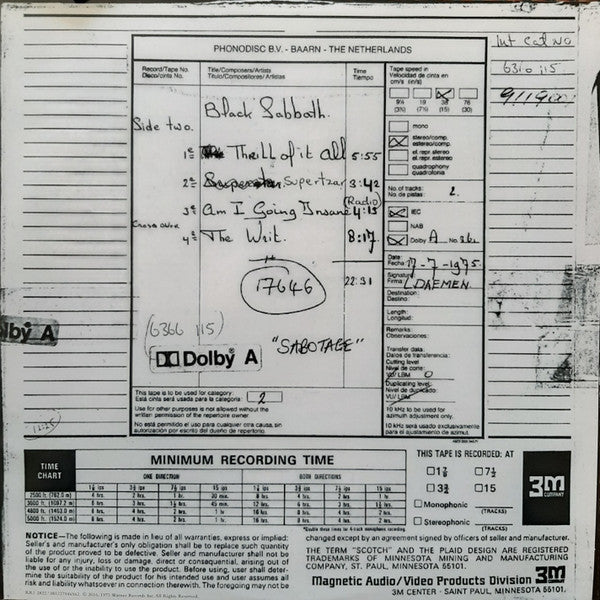 PHONODISC B.V. - BAARN - THE NETHERLANDS
Int Cat No
6310 115
9119001
Record/Tape No.
Disco/cinta No.
Title/Composers/Artists
Titulo/Compositores/Artistas
Time
Tiempo
Black Sabbath.
Side two.
1e Thrill of it all 5:55
2e Supertzar 3:42
3e Am I Going Insane (Radio) 4:15
Cross over
4e The Writ. 8:17
22:31
17646
(6366 115)
"SABOTAGE"
Dolby A
lby A
Tape speed in
Velocidad de cinta en
cm/s (in/s)
9½ 19 38 76
(3¾) (7½) (15) (30)
mono
stereo/comp.
estereo/comp.
el. repr. stereo
el. repr. estereo
quadrophony
quadrofonia
No. of tracks: 2.
No. de pistas:
IEC
NAB
Dolby A No.
Date:
Fecha: 17-7-1975
Signature
Firma: L. DAEMEN
Destination:
Destino:
Length:
Longitud:
Remarks:
Observaciones:
Transfer data:
Datos de transferencia:
Cutting level
Nivel de corte:
VU/LBM 0
Duplicating level:
Nivel de duplicado:
VU/LBM
10 kHz to be used for
azimuth adjustment only.
10 kHz será usado exclusivamente
para el ajuste de azimut.
This tape is to be used for category:
Esta cinta será usada para la categoria: 2
Use for other purposes is not allowed without the
written permission of the repertoire owner.
No está permitido el uso para cualquier otra causa, sin
autorización por escrito del dueño de repertorio.
TIME
CHART
MINIMUM RECORDING TIME
ONE DIRECTION BOTH DIRECTIONS
1⅞ ips 3¾ ips 7½ ips 15 ips 1⅞ ips 3¾ ips 7½ ips 15 ips
2500 ft. (762.0 m) 4 hrs. 2 hrs. 1 hr. 30 min. 8 hrs. 4 hrs. 2 hrs. 1 hr.
THIS TAPE IS RECORDED: AT
1⅞ 7½
3¾ 15
Monophonic
(TRACKS)
Stereophonic
(TRACKS)
3M
COMPANY
NOTICE—The following is made in lieu of all warranties, express or implied:
Seller's and manufacturer's only obligation shall be to replace such quantity
of the product proved to be defective. Neither seller nor manufacturer shall
be liable for any injury, loss or damage, direct or consequential, arising out of
the use of or the inability to use the product. Before using, user shall deter-
mine the suitability of the product for his intended use and user assumes all
risk and liability whatsoever in connection therewith. The foregoing may not be
changed except by an agreement signed by officers of seller and manufacturer.
THE TERM "SCOTCH" AND THE PLAID DESIGN ARE REGISTERED
TRADEMARKS OF MINNESOTA MINING AND MANUFACTURING
COMPANY, ST. PAUL, MINNESOTA 55101.
Magnetic Audio/Video Products Division 3M
3M CENTER · SAINT PAUL, MINNESOTA 55101.